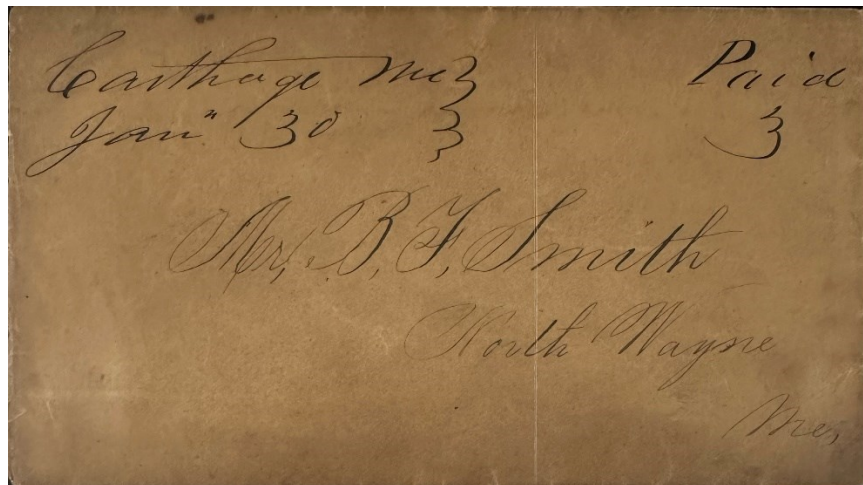 Carthage Me }
Jan" 30 }
Paid
3
Mr. B. F. Smith
North Wayne
Me,